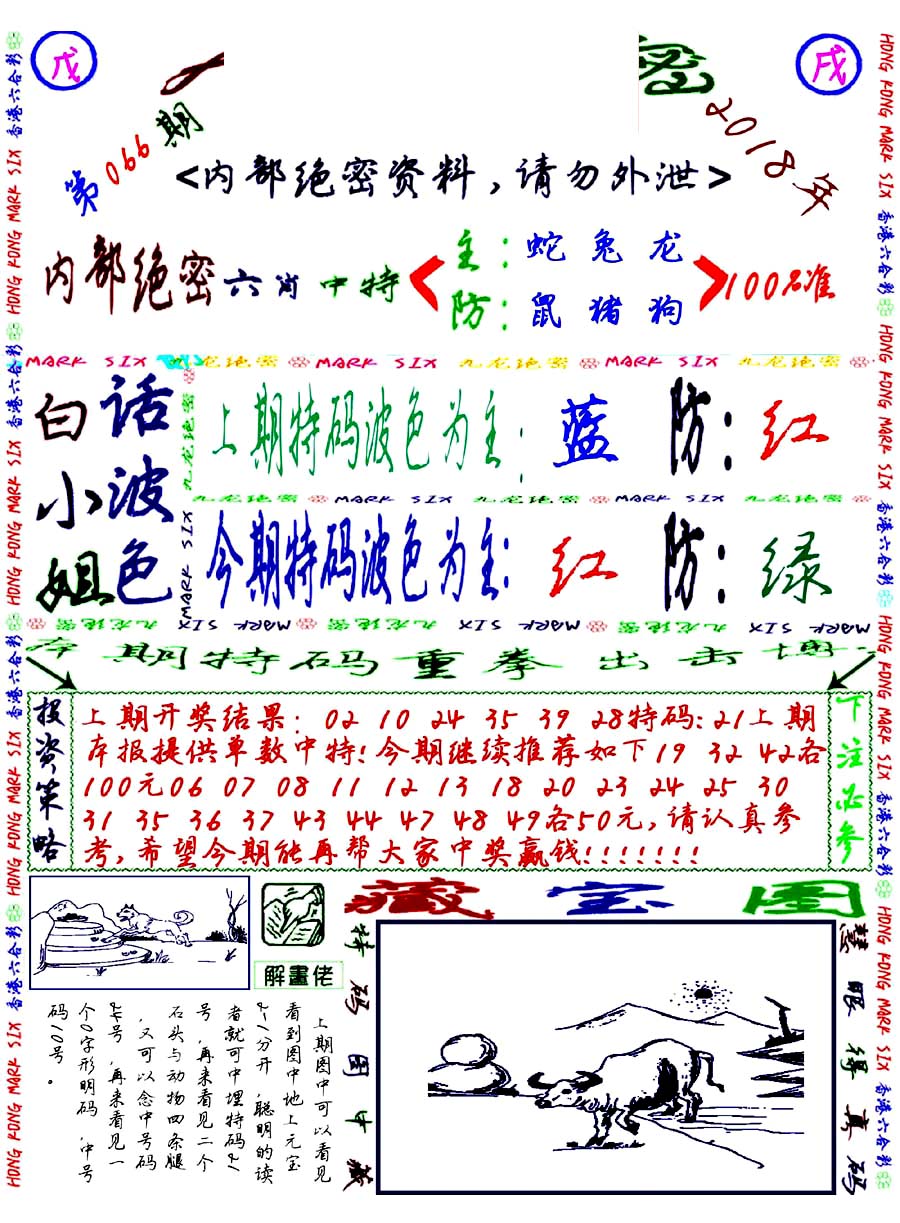 戊
密
戌
第066期
2018年
<内部绝密资料，请勿外泄>
内部绝密六肖中特
主：蛇 兔 龙
防：鼠 猪 狗
100%准
MARK SIX 九龙绝密 MARK SIX 九龙绝密 MARK SIX 九龙绝密
白小姐
话波色
上期特码波色为主：蓝 防：红
九龙绝密 MARK SIX 九龙绝密 MARK SIX 九龙绝密
今期特码波色为主：红 防：绿
MARK SIX 九龙绝密 MARK SIX 九龙绝密 MARK SIX 九龙绝密
本期特码重拳出击博
投资策略
上期开奖结果：02 10 24 35 39 28特码：21上期
本报提供单数中特！今期继续推荐如下19 32 42各
100元06 07 08 11 12 13 18 20 23 24 25 30
31 35 36 37 43 44 47 48 49各50元，请认真参
考，希望今期能再帮大家中奖赢钱！！！！！！！
下注必参
解畫佬
藏宝图
上期图中可以看见
看到图中地上元宝
2/1分开，聪明的读
者就可中埋特码21
号，再来看见二个
石头与动物四条腿
，又可以念中号码
24号，再来看见一
个0字形明码，中号
码10号。
特码图中藏
慧眼得真码
HONG KONG MARK SIX 香港六合彩
HONG KONG MARK SIX 香港六合彩